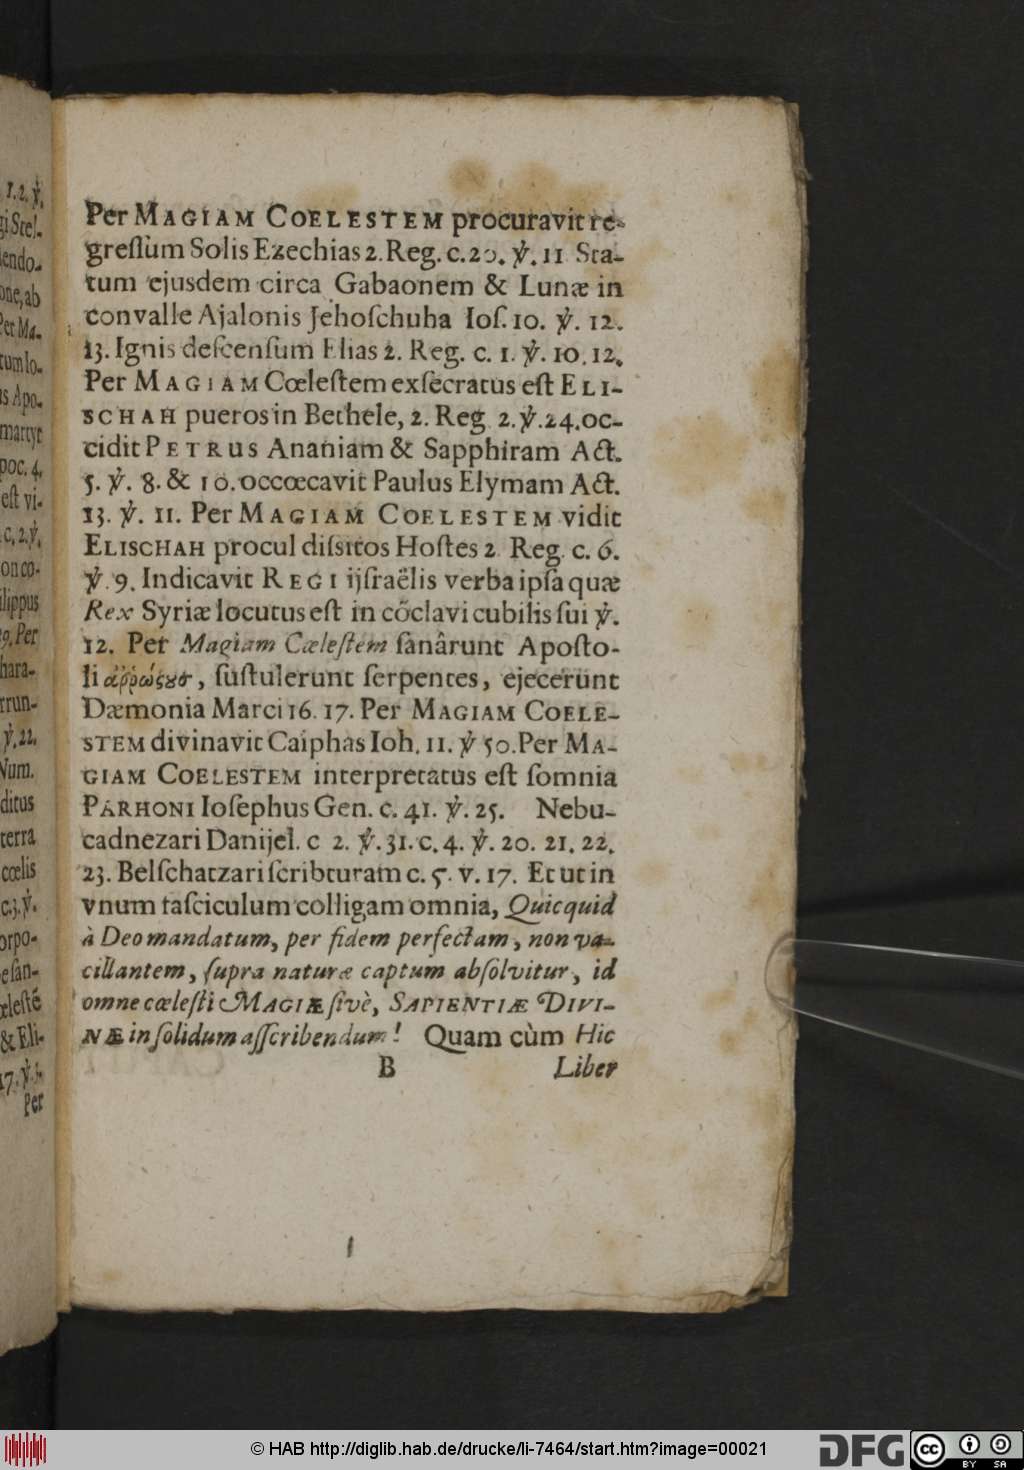 Per MAGIAM COELESTEM procuravit re-
greſsùm Solis Ezechias 2. Reg. c. 20. ℣. 11 Sta-
tum ejusdem circa Gabaonem & Lunæ in
convalle Ajalonis Jehoſchuha Ioſ. 10. ℣. 12.
13. Ignis deſcenſum Elias 2. Reg. c. 1. ℣. 10. 12.
Per MAGIAM Cœleſtem exſecratus eſt ELI-
SCHAH pueros in Bethele, 2. Reg 2. ℣. 24. oc-
cidit PETRUS Ananiam & Sapphiram Act.
5. ℣. 8. & 10. occœcavit Paulus Elymam Act.
13. ℣. 11. Per MAGIAM COELESTEM vidit
ELISCHAH procul diſsitos Hoſtes 2 Reg. c. 6.
℣. 9. Indicavit REGI ijſraëlis verba ipſa quæ
Rex Syriæ locutus eſt in cõclavi cubilis ſui ℣.
12. Per Magiam Cæleſtem ſanârunt Apoſto-
li ἀῤῥώςους, ſuſtulerunt ſerpentes, ejecerunt
Dæmonia Marci 16. 17. Per MAGIAM COELE-
STEM divinavit Caiphas Ioh. 11. ℣ 50. Per MA-
GIAM COELESTEM interpretatus eſt ſomnia
PARHONI Ioſephus Gen. c. 41. ℣. 25. Nebu-
cadnezari Danijel. c 2. ℣. 31. c. 4. ℣. 20. 21. 22.
23. Belſchatzari ſcribturam c. 5. v. 17. Et ut in
vnum faſciculum colligam omnia, Quicquid
à Deo mandatum, per fidem perfectam, non va-
cillantem, ſupra naturæ captum abſolvitur, id
omne cæleſti MAGIÆ ſivè, SAPIENTIÆ DIVI-
NÆ in ſolidum aſſcribendum! Quam cùm Hic
B Liber
© HAB http://diglib.hab.de/drucke/li-7464/start.htm?image=00021
DFG
cc BY SA